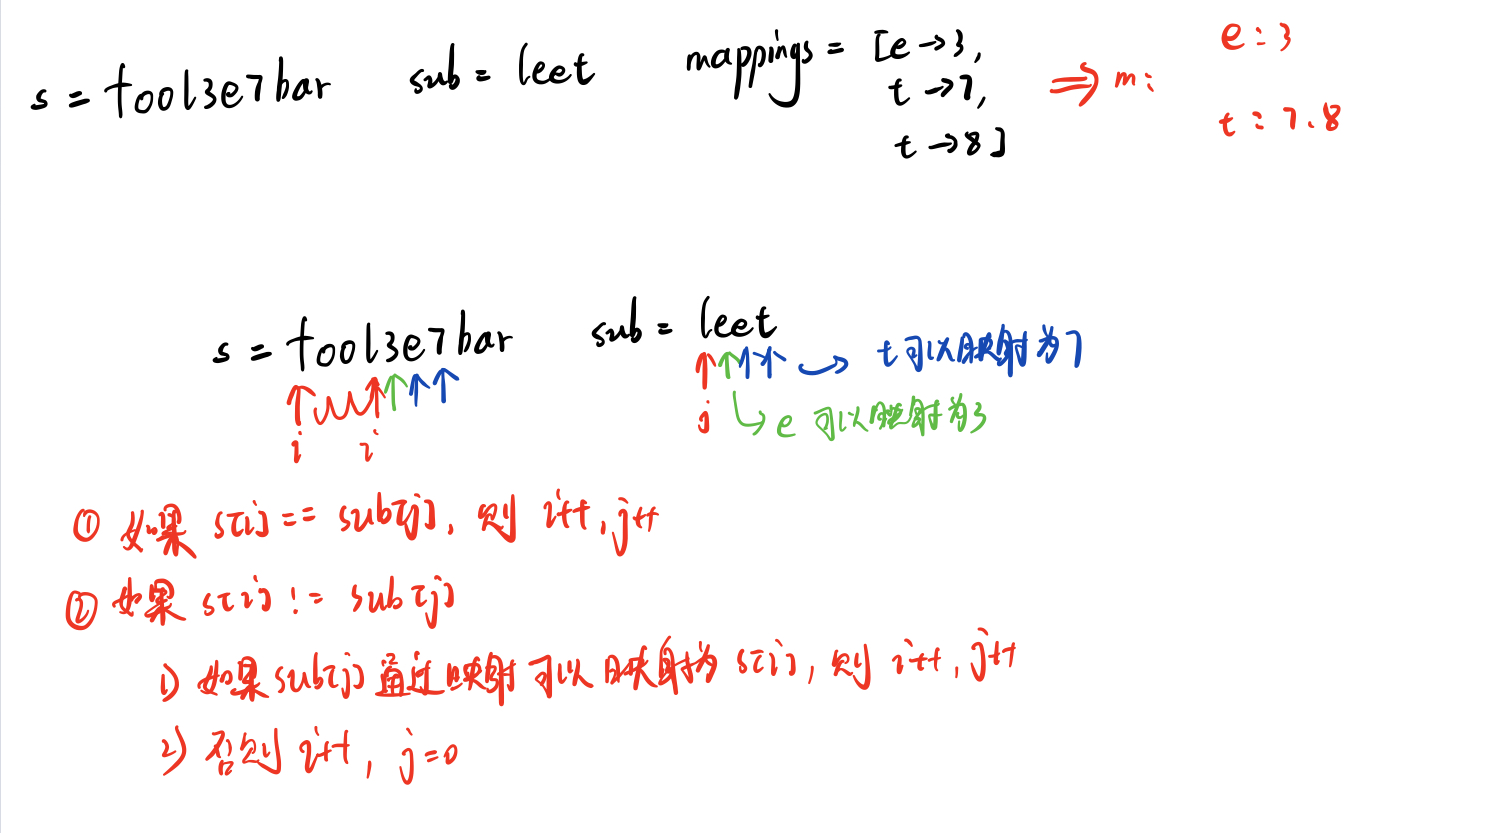 s = fool3e7bar sub = leet mappings = [e→3, ⇒ m: e:3
t→7, t:7.8
t→8]
s = fool3e7bar sub = leet
t可以映射为7
i i j e 可以映射为3
① 如果 s[i] == sub[j], 则 i++, j++
② 如果 s[i] != sub[j]
1) 如果 sub[j] 通过映射可以映射为 s[i], 则 i++, j++
2) 否则 i++, j=0